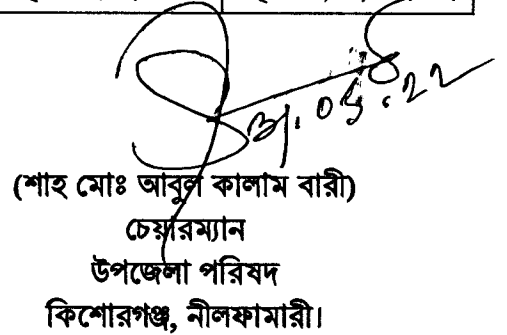 (শাহ মোঃ আবুল কালাম বারী)
চেয়ারম্যান
উপজেলা পরিষদ
কিশোরগঞ্জ, নীলফামারী।